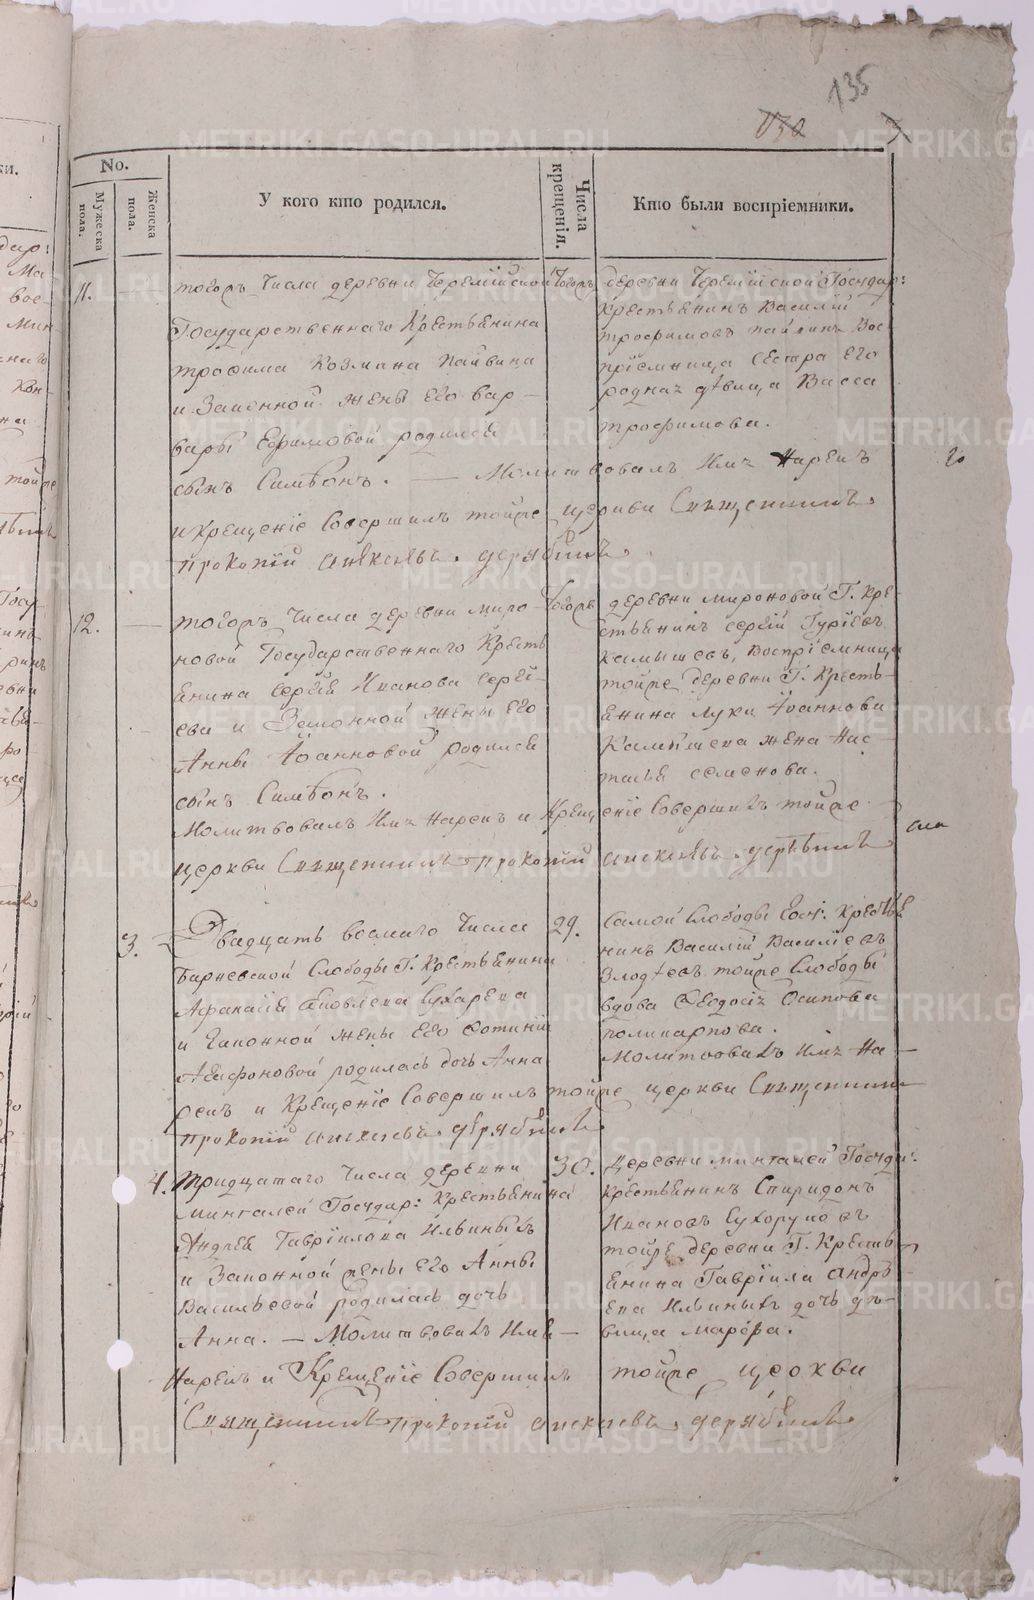 135
132
No.
Мужеска пола.
Женска пола.
У кого кто родился.
Числа крещенія.
Кто были воспріемники.
11.
тогожъ Числа деревни Черемійской
Государственнаго Крестьянина
трофима Козмина Пайвина
и Законной жены Его вар-
вары Ефимовой родился
сынъ Симеонъ. — Молитвовалъ Имя Нарекъ
и крещеніе Совершилъ тойже церкви Священникъ
прокопій
тогожъ
деревни Черемійской Государ:
Крестьянинъ Василій
трофимовъ пайвинъ Вос
пріемница сестра Его
родная дѣвица Васса
трофимова.
12.
тогожъ Числа деревни миро-
новой Государственнаго Кресть
янина Сергѣя Иванова Сергѣ-
ева и Законной жены Его
Анны Іоанновой родился
сынъ Симеонъ.
Молитвовалъ Имя Нарекъ и Крещеніе Совершилъ тойже
церкви Священникъ прокопій
тогожъ
деревни мироновой Г. кре-
стьянинъ сергѣй Гурїевъ
Камышевъ, Воспріемница
тойже деревни Г. Кресть-
янина Луки Іоаннова
Камышева жена Нас-
тасья семенова.
3.
Двадцать восмаго Числа
Барневской Слободы Г. Крестьянина
Афанасія Яковлева Сухарева
и Законной жены Его Фотиніи
родилась дочь Анна
29.
Самой Слободы Гос: Крестья
нинъ Василій Василіевъ
тойже Слободы
вдова Феодосія Осипова
поликарпова.
Молитвовалъ Имя На-
рекъ и Крещеніе Совершилъ тойже церкви Священникъ
прокопій
4.
тридцатаго Числа деревни
Мингалей Государ: Крестьянина
Андрея Гавріилова Ильиныхъ
и Законной жены Его Анны
Васильевой родилась дочь
Анна. — Молитвовалъ Имя —
Нарекъ и Крещеніе Совершилъ тойже церкви
Священникъ прокопій
30.
Деревни мингалей Госуди:
Крестьянинъ Спиридонъ
Ивановъ Сухоруковъ
тойже деревни Г. Кресть
янина Гавріила Андрѣ
ева Ильиныхъ дочь дѣ-
вица марѳа.